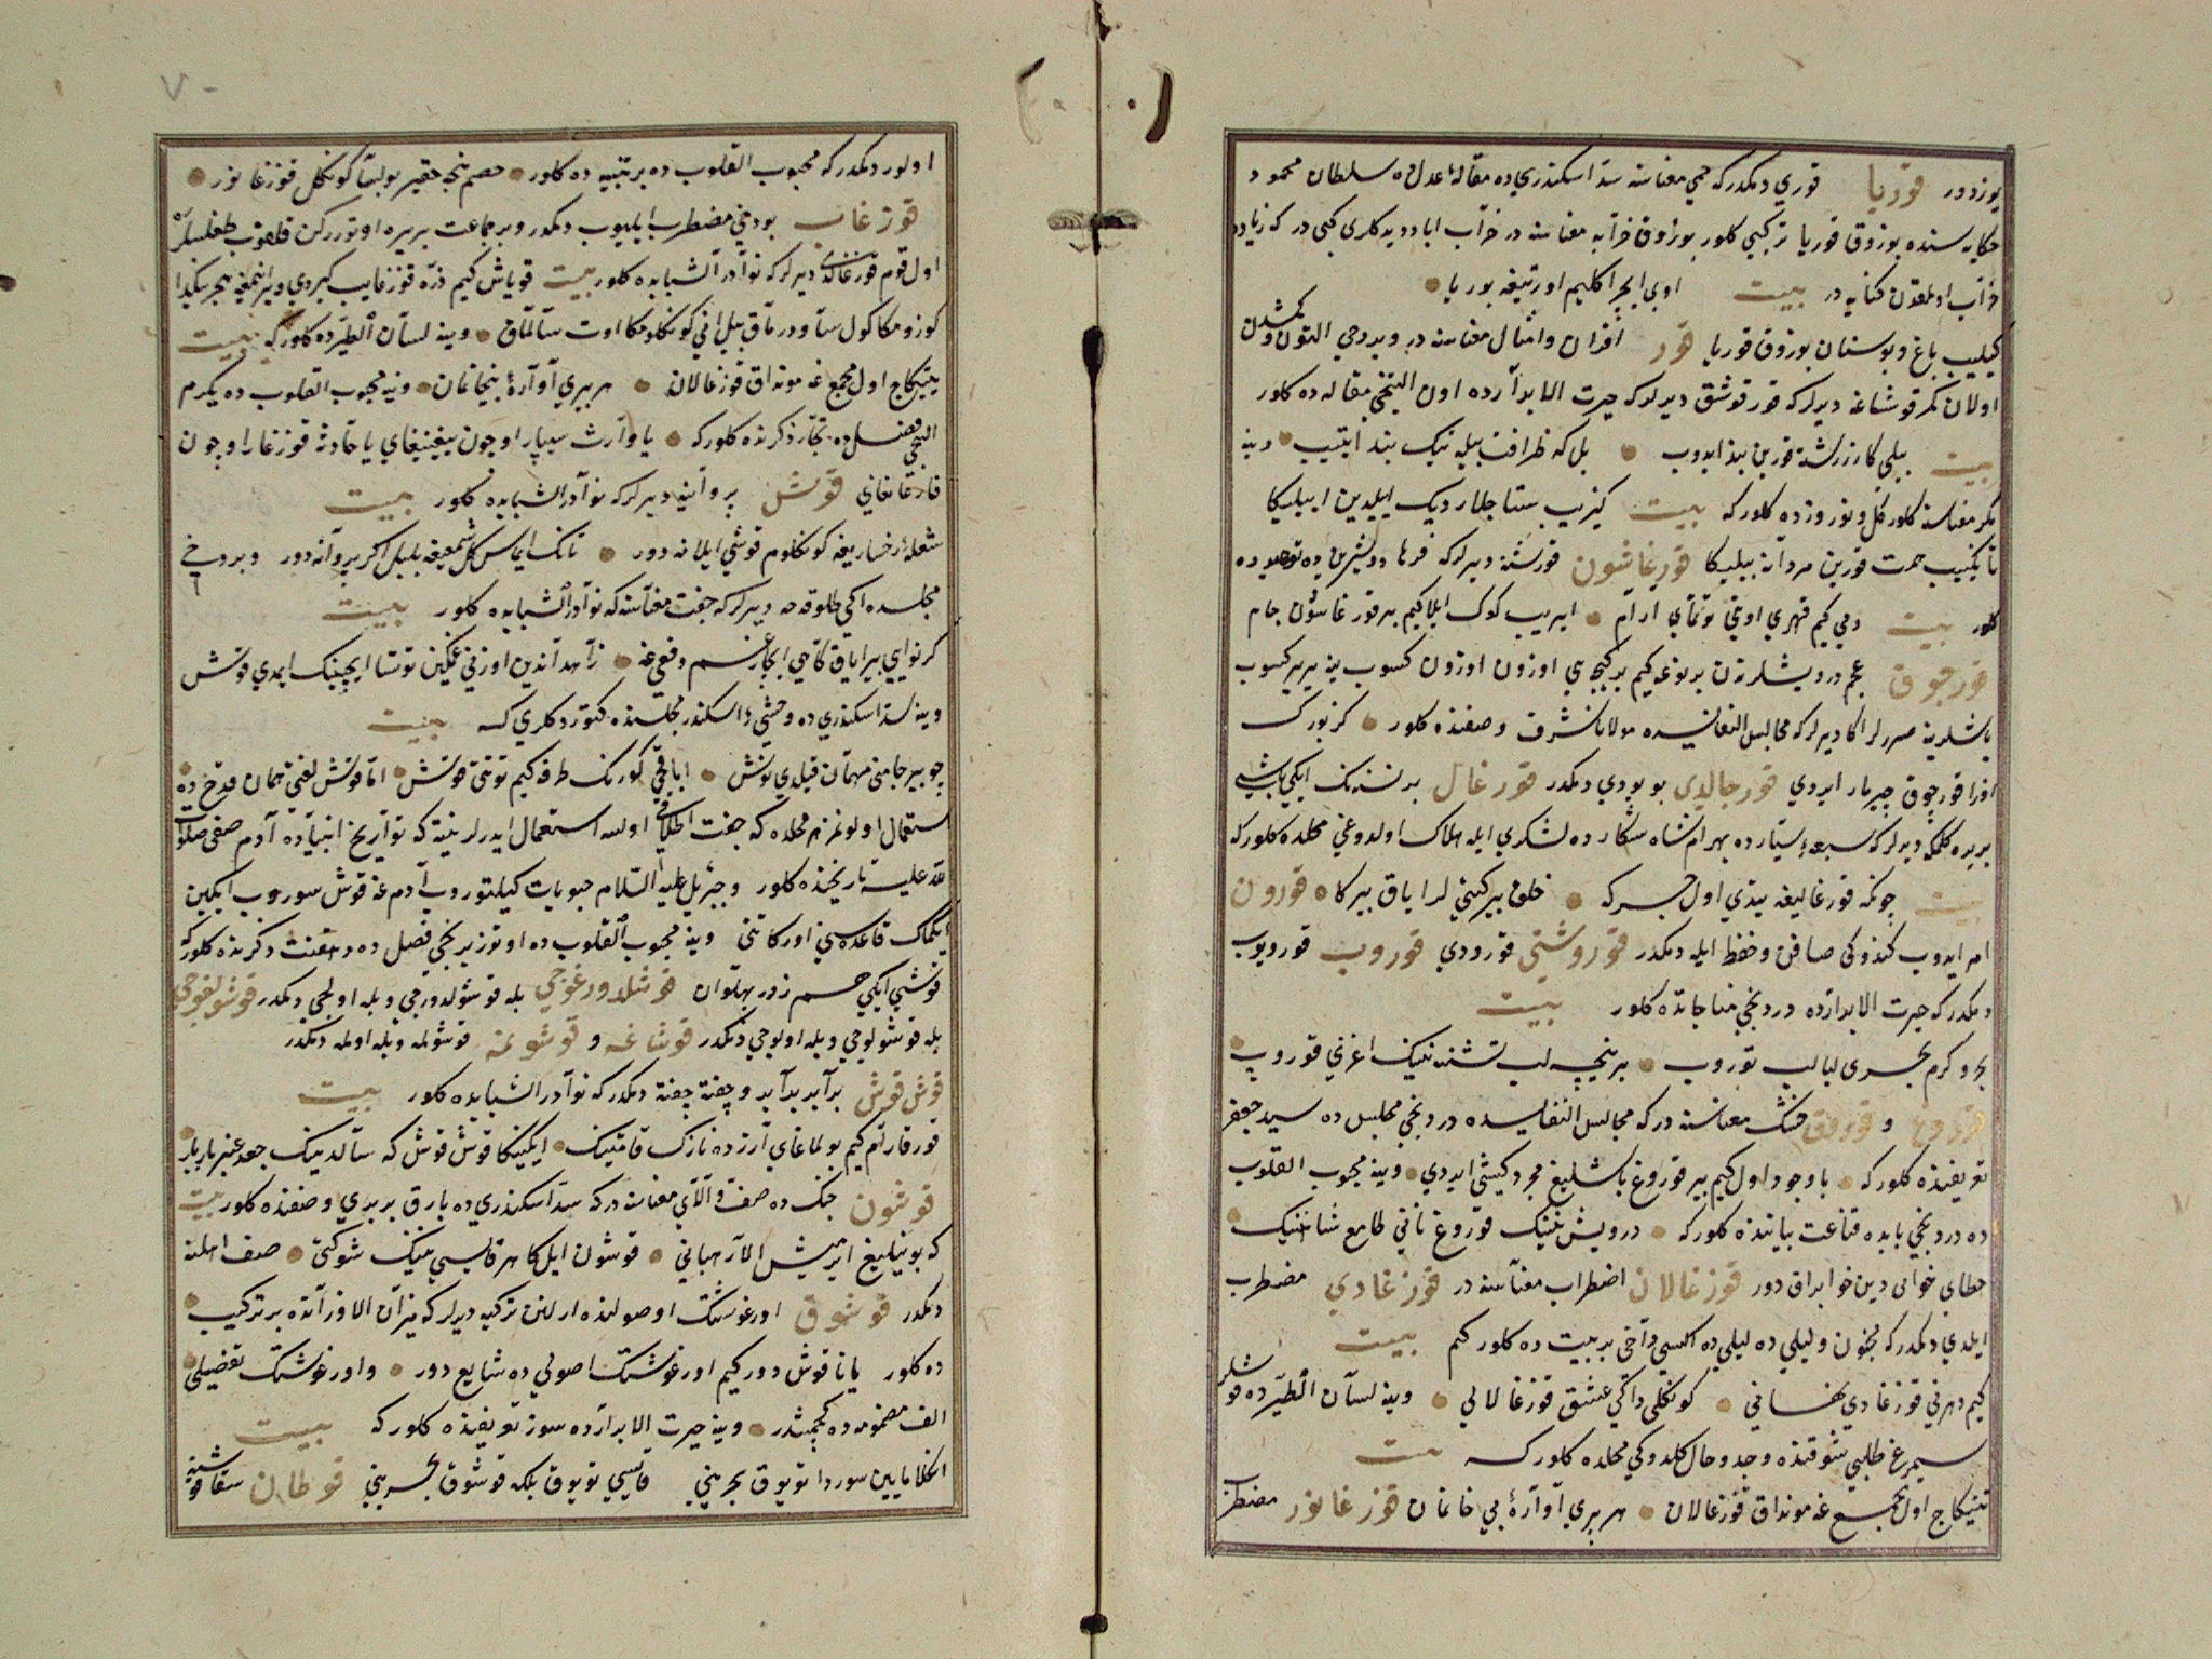 یوزدور قوریا قوری دیمکدر که حمی معناسنه سدّ اسکندریده مقالهٔ عدل ده سلطان محمود
حکایه سنده بوزوق قوریا ترکیبی کلور بوزوق خرابه معناسنه در خراب اباد دیدکلری کبی در که زیاده
خراب اولمقدن کنایه در بیت اوبی ایچرا کلیم اورتیغه بوریا
کیلیب باغ و بوستان بوزوق قوریا قور اقران و امثال معناسنه در وبر دخی التون و کمشدن
اولان کمر قوشاغه دیرلر که قور قوشق دیرلر که حیرت الابرارده اون التنجی مقاله ده کلور
بیت بیلی کا زرکشته قورین بند ایدوب بل که ظرافت بیله نیک بند ایتیب وینه
کمر معناسنه کلور گل و نوروزده کلور که بیت کیزیب ستاجلار دیک ایپلیدین ایپلیکا
تاکیب همت قورین مردانه بیلیکا قورغاشون قورشنه دیرلر که فرهاد و شیرین ده توحیده
کلور بیت دمی کیم قهری اوتی توتماي ارام ایریب کوک ایلاکیم بر قورغاشون جام
قورجوق عجم درویشلرندن بر نوعه کیم بر کیجه یی اوزون اوزون کسوب ینه بربر کسوب
باشلرینه صررلر اکا دیرلر که مجالس النفائسده مولانا شرف وصفنده کلور کز بورک
اوزرا قورجوق چیرمار ایردی قورجالدی بوبودی دیمکدر قورغال بر نسنه نک ایکی باشی
بریره کلمکه دیرلر که سبعهٔ سیارده بهرام شاه شکارده لشکری ایله هلاک اولدوغی محلده کلور که
بیت چونکه قورغالیغه یتدی اول جرکه خلق بیرکیتی لرایاق بیرکا قورون
امر ایدوب کندوکی صاقن و حفظ ایله دیمکدر قوروشتی قورودی قوروب قورویوب
دیمکدر که حیرت الابرارده دردنجی مناجاتده کلور بیت
بحر و کرم بحری لبالب توروب بر نیچه لب تشنه نینک اغزی قوروب
قوروغ و قوروق خشک معناسنه در که مجالس النفایسده دردنجی مجلس ده سید جعفر
تعریفنده کلور که باوجود اول کیم بیر قوروغ باشلیغ مجرد کیشی ایردی وینه محبوب القلوب
ده دردنجی بابده قناعت بیاننده کلور که درویش نینک قوروغ نانی طامع شاهنینک
خطایی خوانی دین خوابراق دور قوزغالان اضطراب معناسنه در قوزغادی مضطرب
ایلدی دیمکدر که مجنون و لیلی ده لیلی ده اکسی داخی بر بیت ده کلور کیم بیت
کیم دهرنی قوزغادی فغانی کونکلی داکی عشق قوزغالانی وینه لسان الطیرده قوشلر
سیمرغ طلبی شوقنده وجد و حال کلدوکی محلده کلور که بیت
یتیکاج اول مجمع غه مونداق قوزغالان هر بیری آوارهٔ بی خانمان قوزغانور مضطرب
اولور دیمکدر که محبوب القلوب ده بر تنبیه ده کلور خصم نیجه حقیر بولسا کونکل قوزغانور
قوزغاب بو دخی مضطرب ایلیوب دیمکدر و بر جماعت بریره اوتوررکن قلقوب طغلسلر
اول قوم قوزغالدی دیرلر که نوادر الشبابده کلور بیت قویاش کیم ذرّه قوزغایب کیردی
کوزومکا کول ساوورماق بیل انی کونکلومکا اوت سالماق وینه لسان الطیرده کلور که بیت
یتیکاج اول مجمع غه مونداق قوزغالان هر بیری آوارهٔ بیخانمان وینه محبوب القلوب ده یکرم
التنجی فصل ده تجار ذکرنده کلور که یا وارث سیپار اوچون ییغیلغای یا حادثه قوزغار اوچون
قازغانغای قوش پروانیه دیرلر که نوادر الشبابده کلور بیت
شعلهٔ رخساریغه کونکلوم قوشی ایلانه دور تانک ایماس کل شمعیغه بلبل اکر پروانه دور وبر دخی
مجلسده اکی طلو قدحه دیرلر که جفت معناسنه که نوادر الشبابده کلور بیت
کر نوایی بیر ایاق تاجی ایچار غم دفعی غه زاهد آندین اوزنی غمکین توتسا ایچینک ایمدی قوش
وینه سد اسکندری ده وحشی اسکندر مجلسنده کتوردکلری که بیت
چو بیر جامنی مهمان قیلدی نوش ایاقچی کورنک طرفه کیم توتتی قوش اما قوش لفظی همان قدح ده
استعمال اولونمز هر محلده که جفت اطلاقی اولسه استعمال ایدرلر نیته که تواریخ انبیاده آدم صفی صلوات
الله علیه تاریخنده کلور و جبرئیل علیه السلام حبوبات کیلتوروب آدم غه قوش سوروب ایکین
ایکماک قاعده سین اورکاتتی وینه محبوب القلوب ده اوتوز برنجی فصل ده دهقنت ذکرنده کلور که
قوشی ایکی جسم زور پهلوان قوشلدورغوجی بله قوشولدورجی و بله اولجی دیمکدر قوشولغوجی
بله قوشولوجی و بله اولوجی دیمکدر قوشاغه و قوشونمه قوشولمه و بله اولمه دیمکدر
قوش قوش برآبد برآبد و چفته چفته دیمکدر که نوادر الشبابده کلور بیت
قورقارام کیم بولماغای آرزده نازک قامتینک ایکینکا قوش قوش که سالدینک جعد عنبر بار
قوشون جنک ده صف و آلای معناسنه در که سد اسکندری ده بارق بربری وصفنده کلور بیت
که بویتلیغ ایرمیش الار هیبتی قوشون ایل کا هر قایسی نینک شوکتی صف اهلنه
دیمکدر قوشوق اورغوشتک اوصولنده ارلنن ترکیبه دیرلر که میزان الاوزانده بر ترکیب
ده کلور یانا قوش دور کیم اورغوشتک اصولی ده شایع دور و اورغوشتک تفصیلی
الف مضمومه ده کچمشدر وینه حیرت الابرارده سوز تعریفنده کلور که بیت
انکلامایین سوردا تویوق بحرینی قایسی تویوق بلکه قوشوق بحرینی قوطان سقا قوشنه